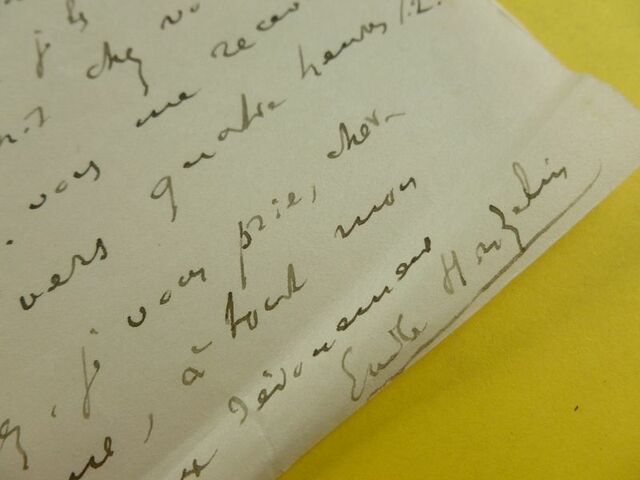 je
chez vo
vous me recev
vers quatre heures 1/2.
, je vous prie, cher
, à tout mon
dévouement
Emile Hinzelin